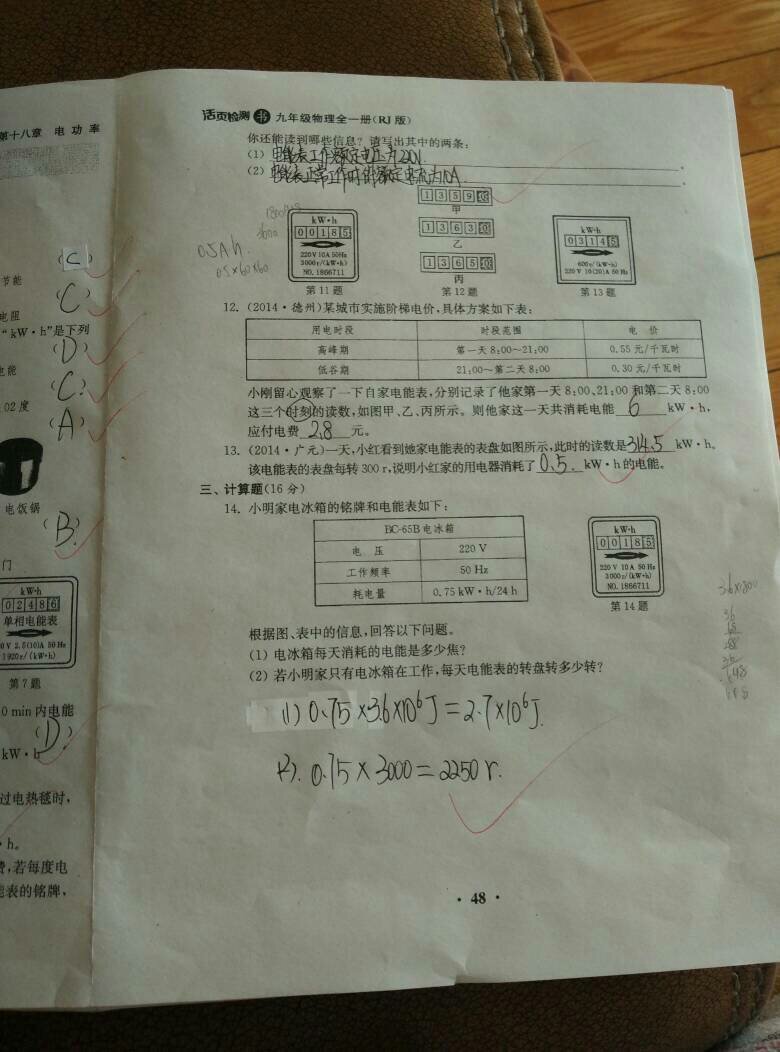 第十八章 电功率
节能
电阻
"kW·h"是下列
电能
02度
电饭锅
门
(C)
(C)
(D)
(C)
(A)
(B)
kW·h
02486
单相电能表
0V 2.5(10)A 50Hz
1920r/(kW·h)
第7题
0 min内电能
(D)
kW·h
过电热毯时,
·h。
费,若每度电
能表的铭牌,
活页检测书 九年级物理全一册(RJ版)
你还能读到哪些信息?请写出其中的两条:
(1) 电能表工作额定电压为220V.
(2) 电能表正常工作时的额定电流为10A.
0.5A h.
0.5×60×60
kW·h
00185
220V 10A 50Hz
3000r/(kW·h)
NO.1866711
第11题
甲
乙
丙
第12题
kW·h
03145
600r/(kW·h)
220V 10(20)A 50Hz
第13题
12. (2014·德州)某城市实施阶梯电价,具体方案如下表:
用电时段 时段范围 电 价
高峰期 第一天8:00~21:00 0.55元/千瓦时
低谷期 21:00~第二天8:00 0.30元/千瓦时
小刚留心观察了一下自家电能表,分别记录了他家第一天8:00、21:00和第二天8:00
这三个时刻的读数,如图甲、乙、丙所示。则他家这一天共消耗电能 6 kW·h,
应付电费 2.8 元。
13. (2014·广元)一天,小红看到她家电能表的表盘如图所示,此时的读数是 314.5 kW·h。
该电能表的表盘每转300r,说明小红家的用电器消耗了 0.5 kW·h的电能。
三、计算题(16分)
14. 小明家电冰箱的铭牌和电能表如下:
BC-65B电冰箱
电 压 220 V
工作频率 50 Hz
耗电量 0.75 kW·h/24 h
kW·h
00185
220V 10A 50Hz
3000r/(kW·h)
NO.1866711
第14题
根据图、表中的信息,回答以下问题。
(1) 电冰箱每天消耗的电能是多少焦?
(2) 若小明家只有电冰箱在工作,每天电能表的转盘转多少转?
(1) 0.75×3.6×10⁶J=2.7×10⁶J.
(2). 0.75×3000=2250 r.
·48·